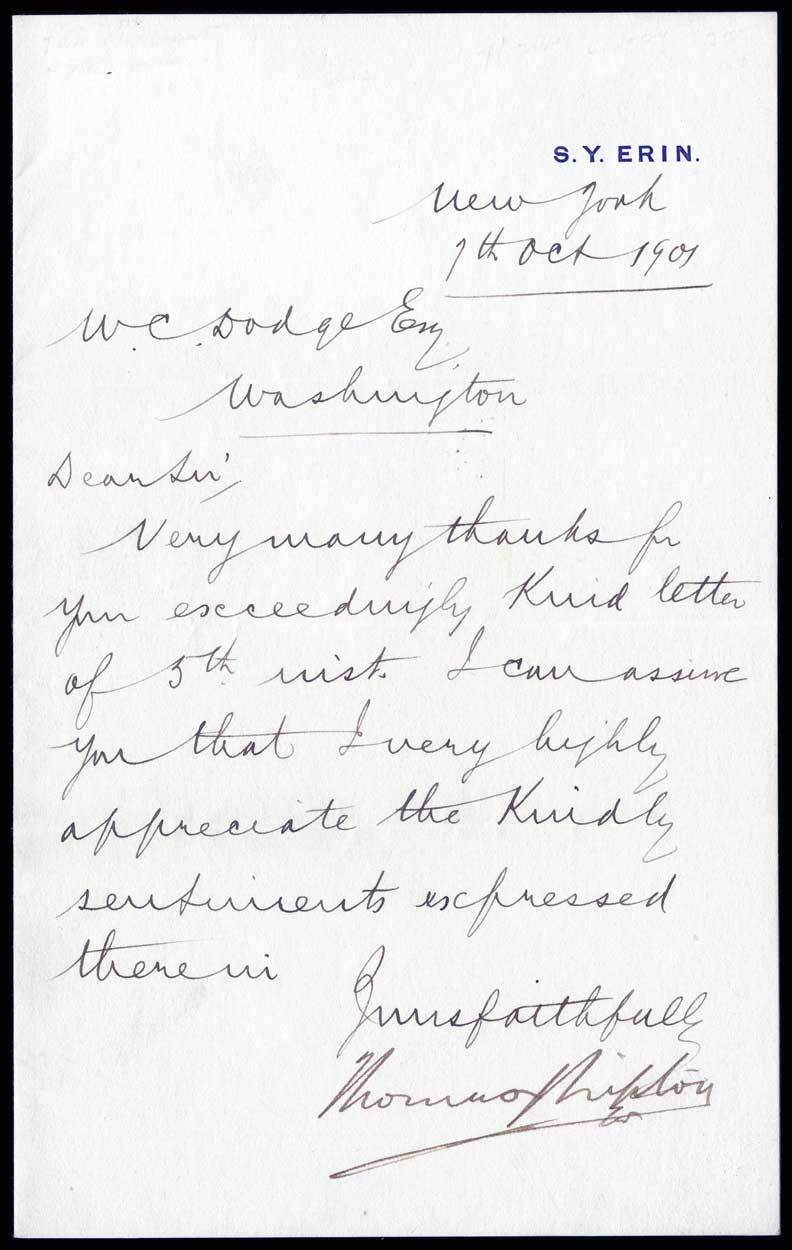 S. Y. ERIN.
New York
7th Oct 1901
W. C. Dodge Esq
Washington
Dear Sir,
Very many thanks for
your exceedingly Kind letter
of 5th inst. I can assure
you that I very highly
appreciate the Kindly
sentiments expressed
therein
Yours faithfully
Thomas J Lipton